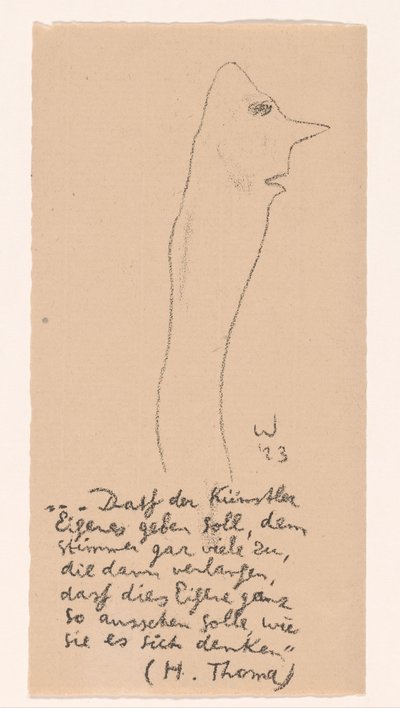 W
'23
... Daß der Künstler
Eigenes geben soll, dem
stimmen gar viele zu,
die dann verlangen,
daß dies Eigene ganz
so aussehen solle, wie
sie es sich denken"
(H. Thoma)